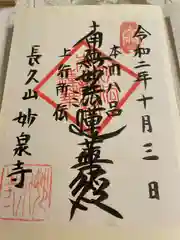 令和二年十月三日
南無妙法蓮華経
上行所伝
長久山妙泉寺